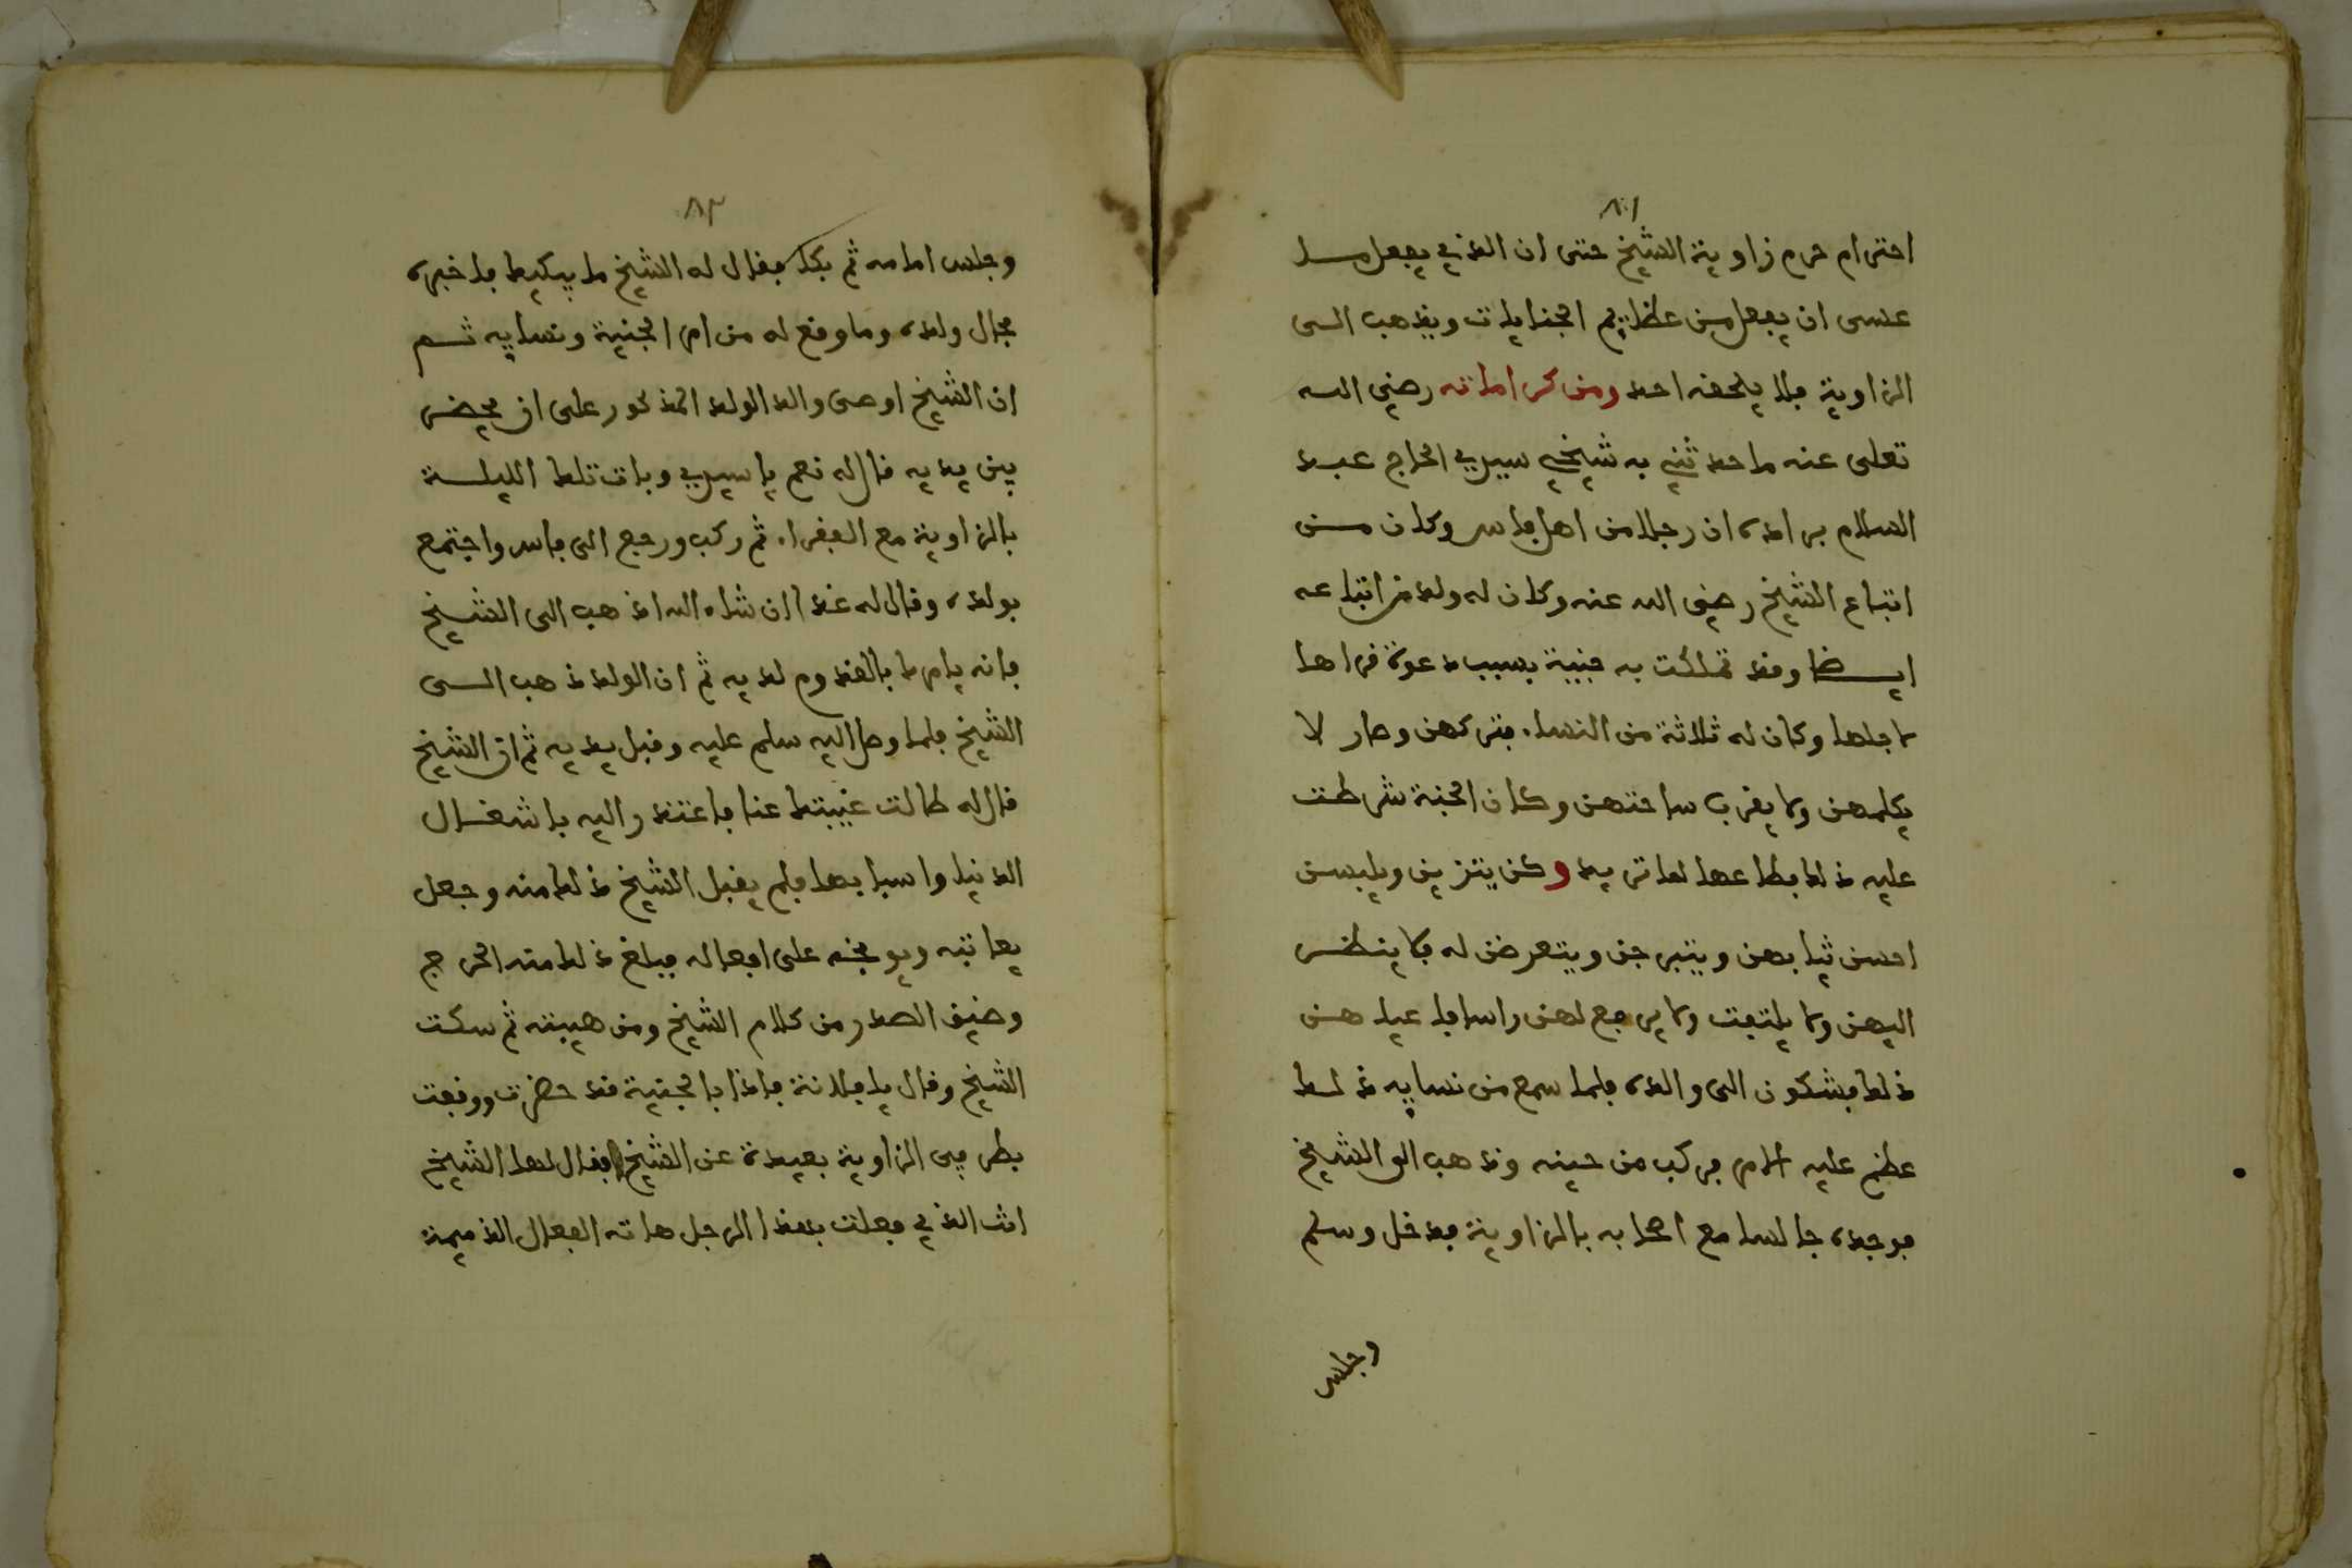 ٨١
احترام حرم زاوية الشيخ حتى ان الذي يفعل ما
عسى ان يفعل من عظايم الجنايات ويذهب الى
الزاوية فلا يلحقه احد ومن كراماته رضي الله
تعلى عنه ما حدثني به شيخي سيدي الحاج عبد
السلام برادة ان رجلا من اهل فاس وكان من
اتباع الشيخ رضي الله عنه وكان له ولد من اتباعه
ايضا وقد تملكت به جنية بسبب دعوة قراها
لاجلها وكان له ثلاثة من النساء فتركهن وصار لا
يكلمهن ولا يقرب ساحتهن وكان الجنية شرطت
عليه ذلك فطاعها لما تريد وكن يتزين ويلبسن
احسن ثيابهن ويتبرجن ويتعرض له فلا ينظر
اليهن ولا يلتفت ولا يرجع لهن راسا فاعياهن
ذلك فشكون الى والده فلما سمع من نسايه ذلك
عظم عليه الامر فركب من حينه وذهب الى الشيخ
فوجده جالسا مع اصحابه بالزاوية فدخل وسلم
وجلس
٨٢
وجلس امامه ثم بكا فقال له الشيخ ما يبكيك فاخبره
بحال ولده وما وقع له من امر الجنية ونسايه ثم
ان الشيخ اوصى والد الولد المذكور على ان يحضر
بين يديه قال له نعم يا سيدي وبات تلك الليلة
بالزاوية مع الفقراء ثم ركب ورجع الى فاس واجتمع
بولده وقال له غدا ان شاء الله اذهب الى الشيخ
فانه يامرك بالقدوم لديه ثم ان الولد ذهب الى
الشيخ فلما وصل اليه سلم عليه وقبل يديه ثم ان الشيخ
قال له طالت غيبتك عنا فاعتذر اليه باشغال
الدنيا واسبابها فلم يقبل الشيخ ذلك منه وجعل
يعاتبه ويوبخه على افعاله فبلغ ذلك منه الحرج
وضيق الصدر من كلام الشيخ ومن هيبته ثم سكت
الشيخ وقال يا فلانة فاذا بالجنية قد حضرت ووقفت
بطرفي الزاوية بعيدة عن الشيخ فقال لها الشيخ
انت الذي فعلت بهذا الرجل هاته الفعال الذميمة